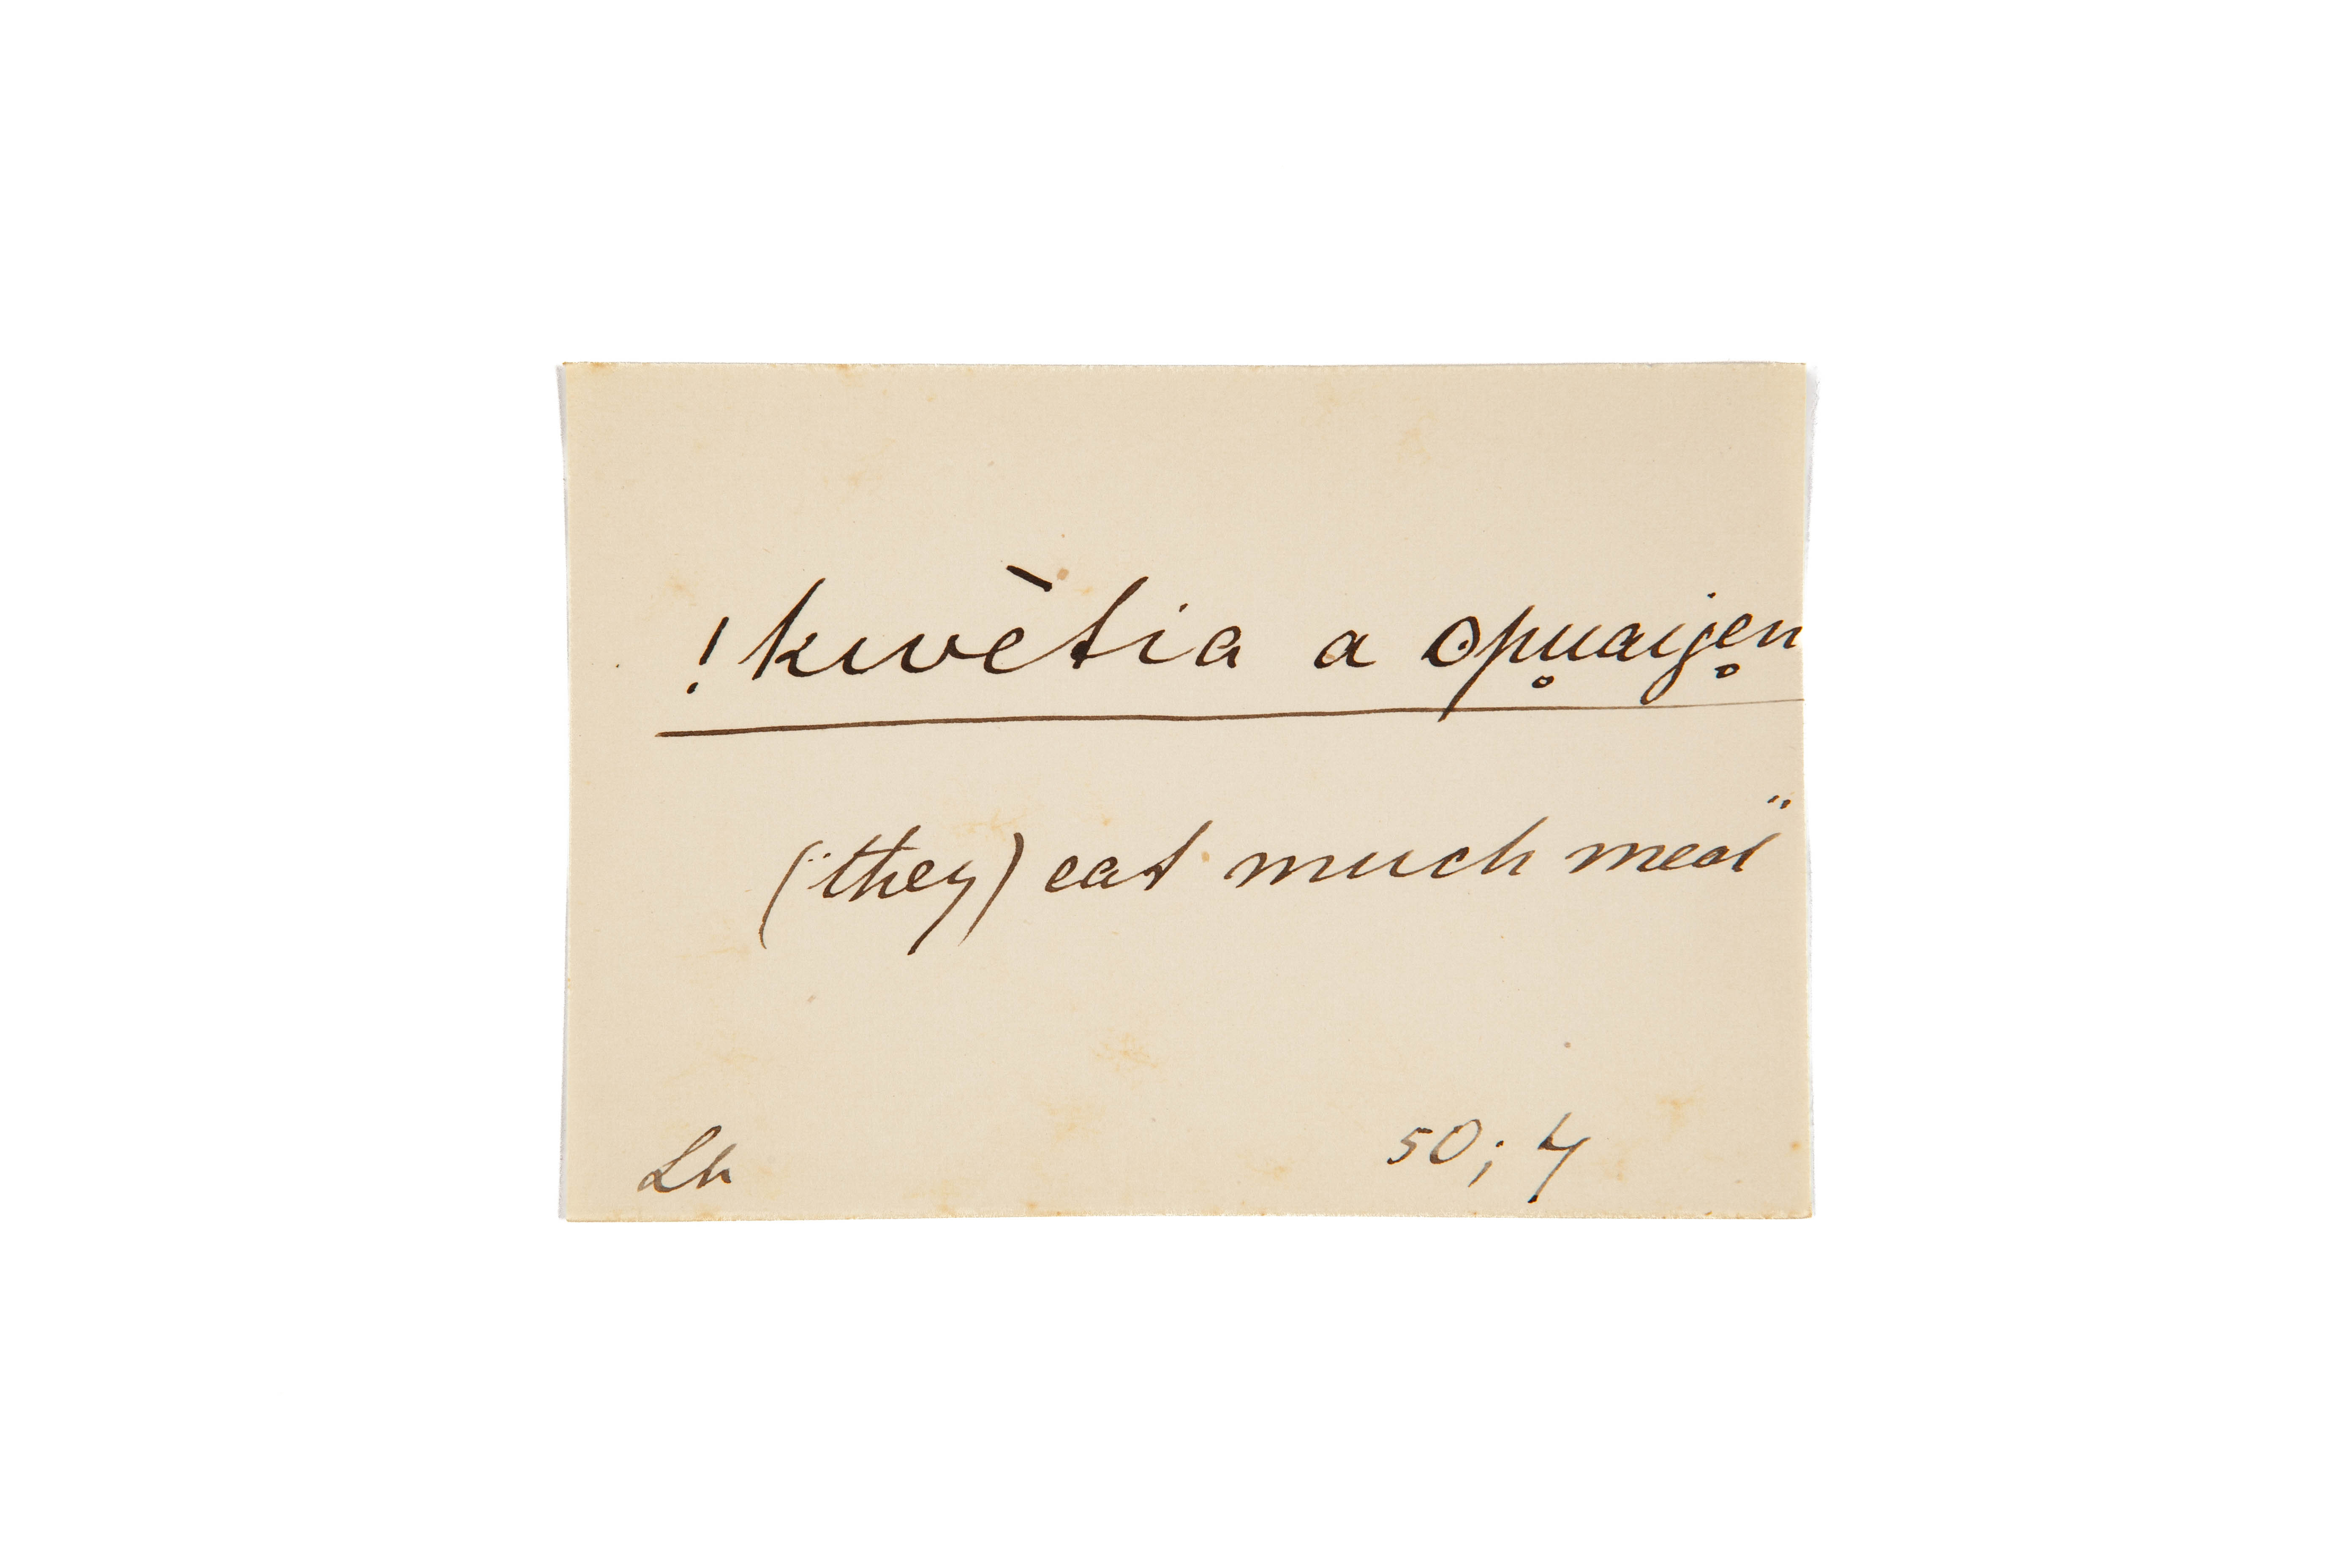 !kwètia a ʘpu̥aije̥n
("they) eat much meat"
Lh 50; 4